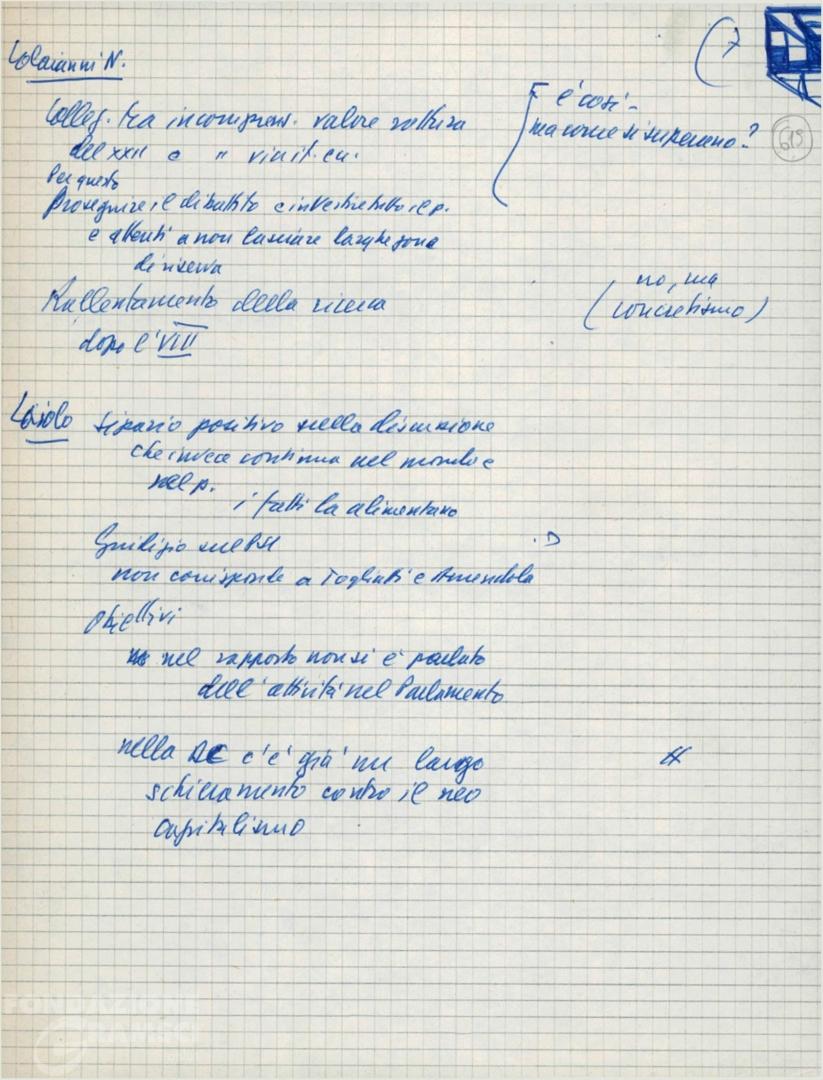 (7
Colaianni N.
è così -
Colleg. tra incomprens. valore rottura
ma come si superano?
615
del XXII e " vie it. cu.
Per questo
Proseguire il dibattito e investire tutto il p.
e attenti a non lasciare larghe zone
di riserva
Rallentamento della ricerca
no, ma
(concretismo)
dopo l'VIII
Lajolo sipario positivo sulla discussione
che invece continua nel mondo e
nel p.
i fatti la alimentano
Giudizio sul PSI
non corisponde a Togliatti e Amendola
Obiettivi
nel rapporto non si è parlato
dell'attività nel Parlamento
nella DC c'è già un largo
schieramento contro il neo
capitalismo
FONDAZIONE
GRAMSCI